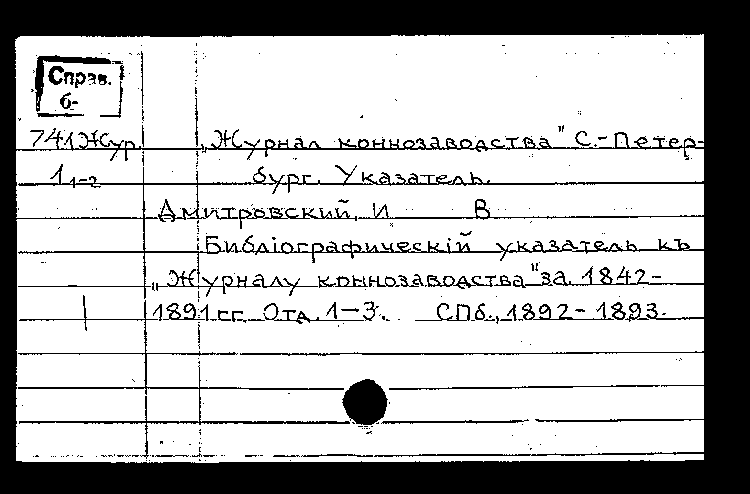 Справ.
б-
741Жур. „Журнал коннозаводства" С.-Петер-
1 1-2 бург. Указатель.
Дмитровский, И В
Библіографическій указатель къ
„Журналу коннозаводства" за 1842-
1891 гг. Отд. 1-3. СПб., 1892-1893.